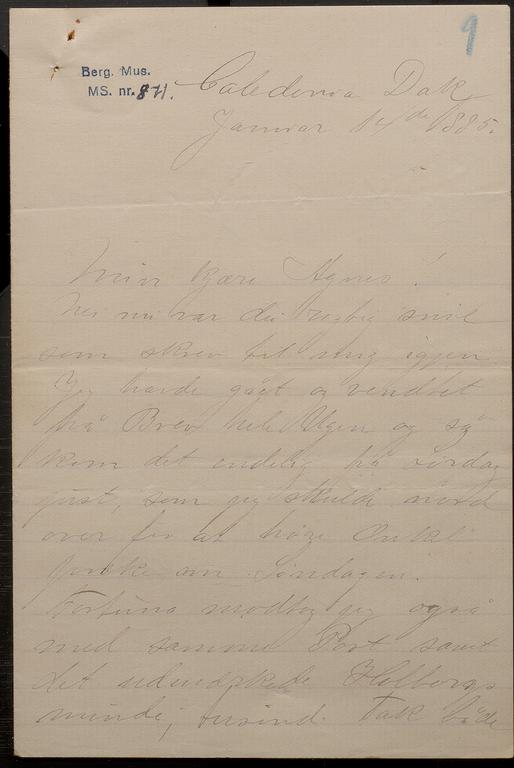 9
Berg. Mus.
MS. nr. 871.
Caledonia Dak
Januar 14de 1885.
Min kjære Agnes!
Nei nu var du rigtig snil
som skrev til mig igjen
Jeg havde gået og vendtet
på Brev hele Ugen og så
kom det endelig på Lördag
just, som jeg skulde nord
over for at höre Onkel
præke om Söndagen.
Fortuna modtog jeg også
med samme Post samt
det udmærkede Holbergs
minde; tusind Tak både